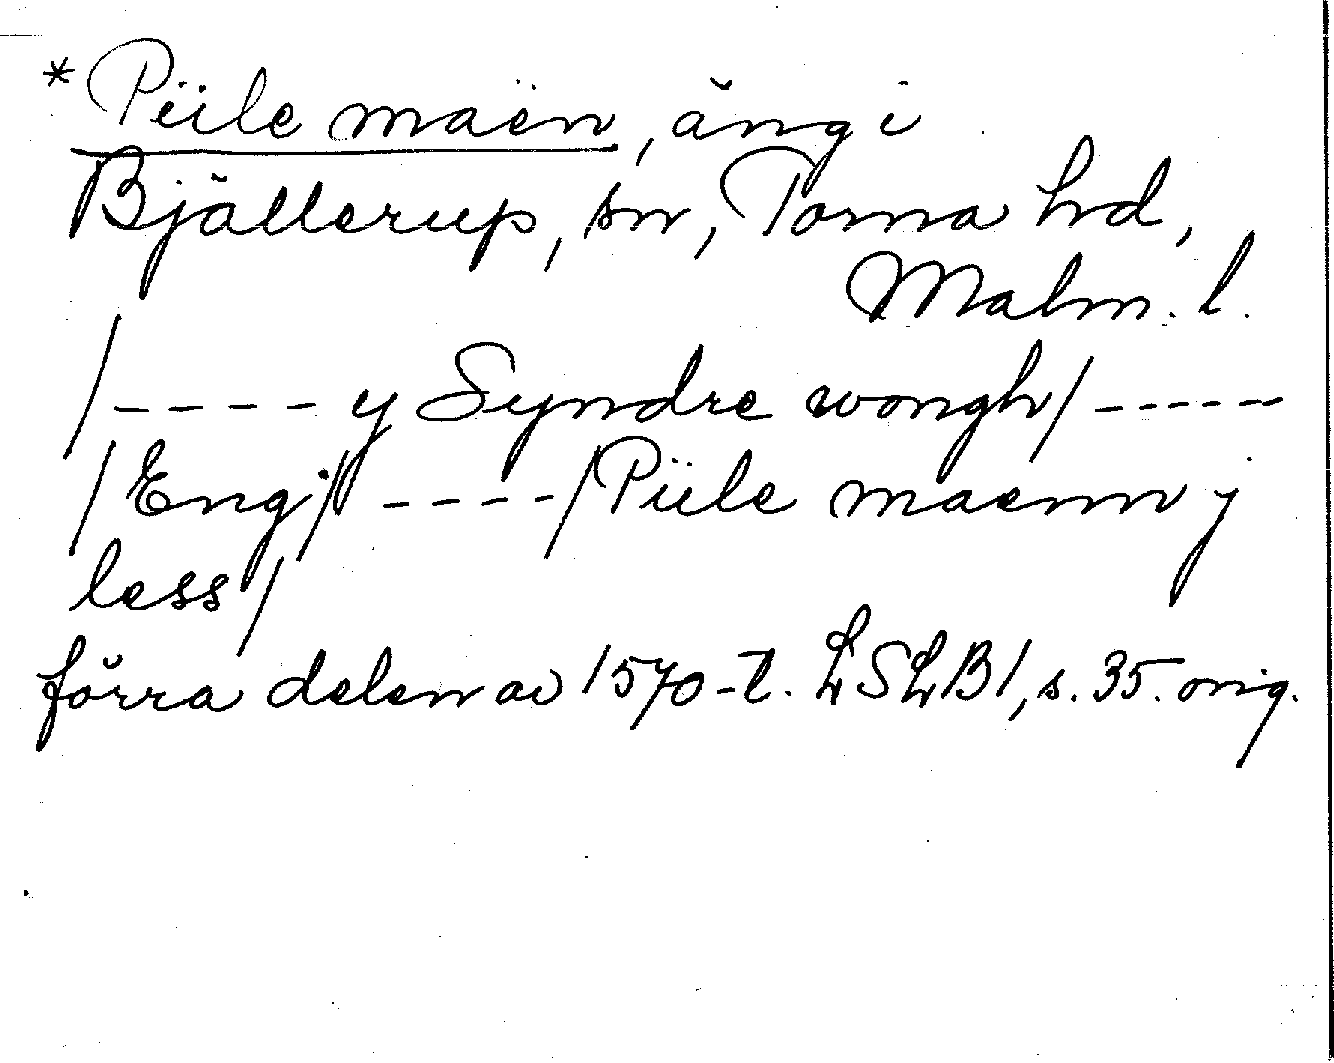 *Piile maen, äng i
Bjällerup, sn, Torna hd,
Malm. l.
/---- y Syndre wongh/-----
/Eng/ ----/Piile maenn j
less/
förra delen av 1570-t. LSLB1, s. 35. orig.